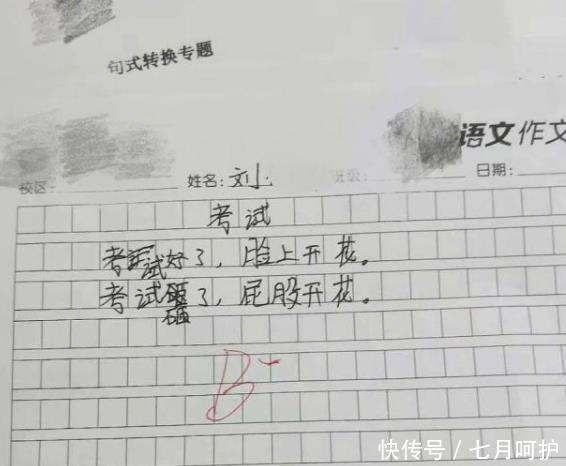 句式转换专题
语文作文
校区: 姓名: 刘小 班级: 日期:
考试
考试好了，脸上开花。
考试砸了，屁股开花。
B-
快传号 / 七月呵护